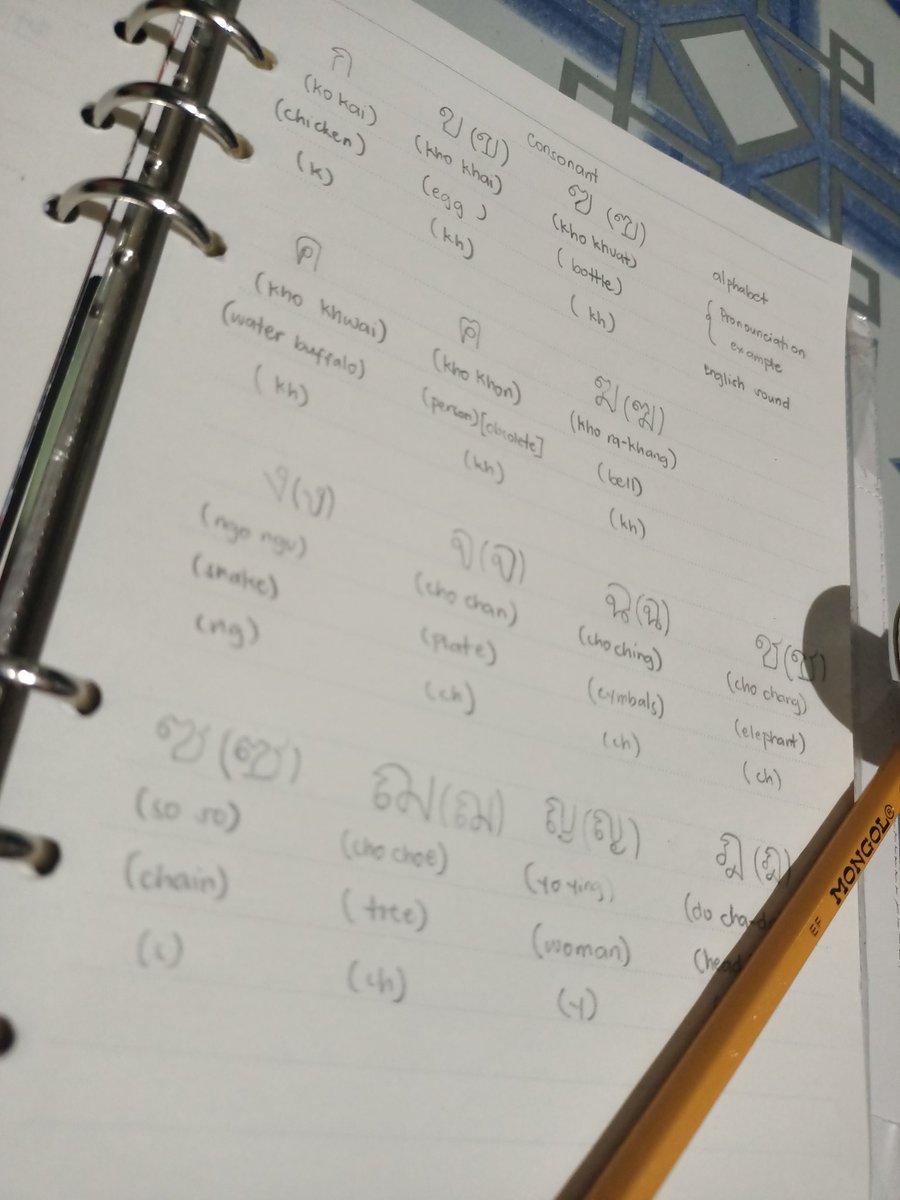 Consonant
ก
(ko kai)
(chicken)
(k)
ข (ข)
(kho khai)
(egg)
(kh)
ฃ (ฃ)
(kho khuat)
(bottle)
(kh)
alphabet
{ Pronounciation
example
English sound
ค
(kho khwai)
(water buffalo)
(kh)
ฅ
(kho khon)
(person) [obsolete]
(kh)
ฆ (ฆ)
(kho ra-khang)
(bell)
(kh)
ง (ง)
(ngo ngu)
(snake)
(ng)
จ (จ)
(cho chan)
(plate)
(ch)
ฉ (ฉ)
(cho ching)
(cymbals)
(ch)
ช (ช)
(cho chang)
(elephant)
(ch)
ซ (ซ)
(so so)
(chain)
(s)
ฌ (ฌ)
(cho choe)
(tree)
(ch)
ญ (ญ)
(yo ying)
(woman)
(y)
ฎ (ฎ)
(do cha-d
(head
MONGOL®
EF